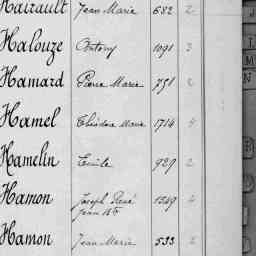 Hairault Jean Marie 682 2
Halouze Antony 1091 3
Hamard Pierre Marie 751 2
Hamel Théodore Marie 1714 4
Hamelin Emile 929 2
Hamon Joseph René 1249 4
Jean Bte
Hamon Jean Marie 533 2